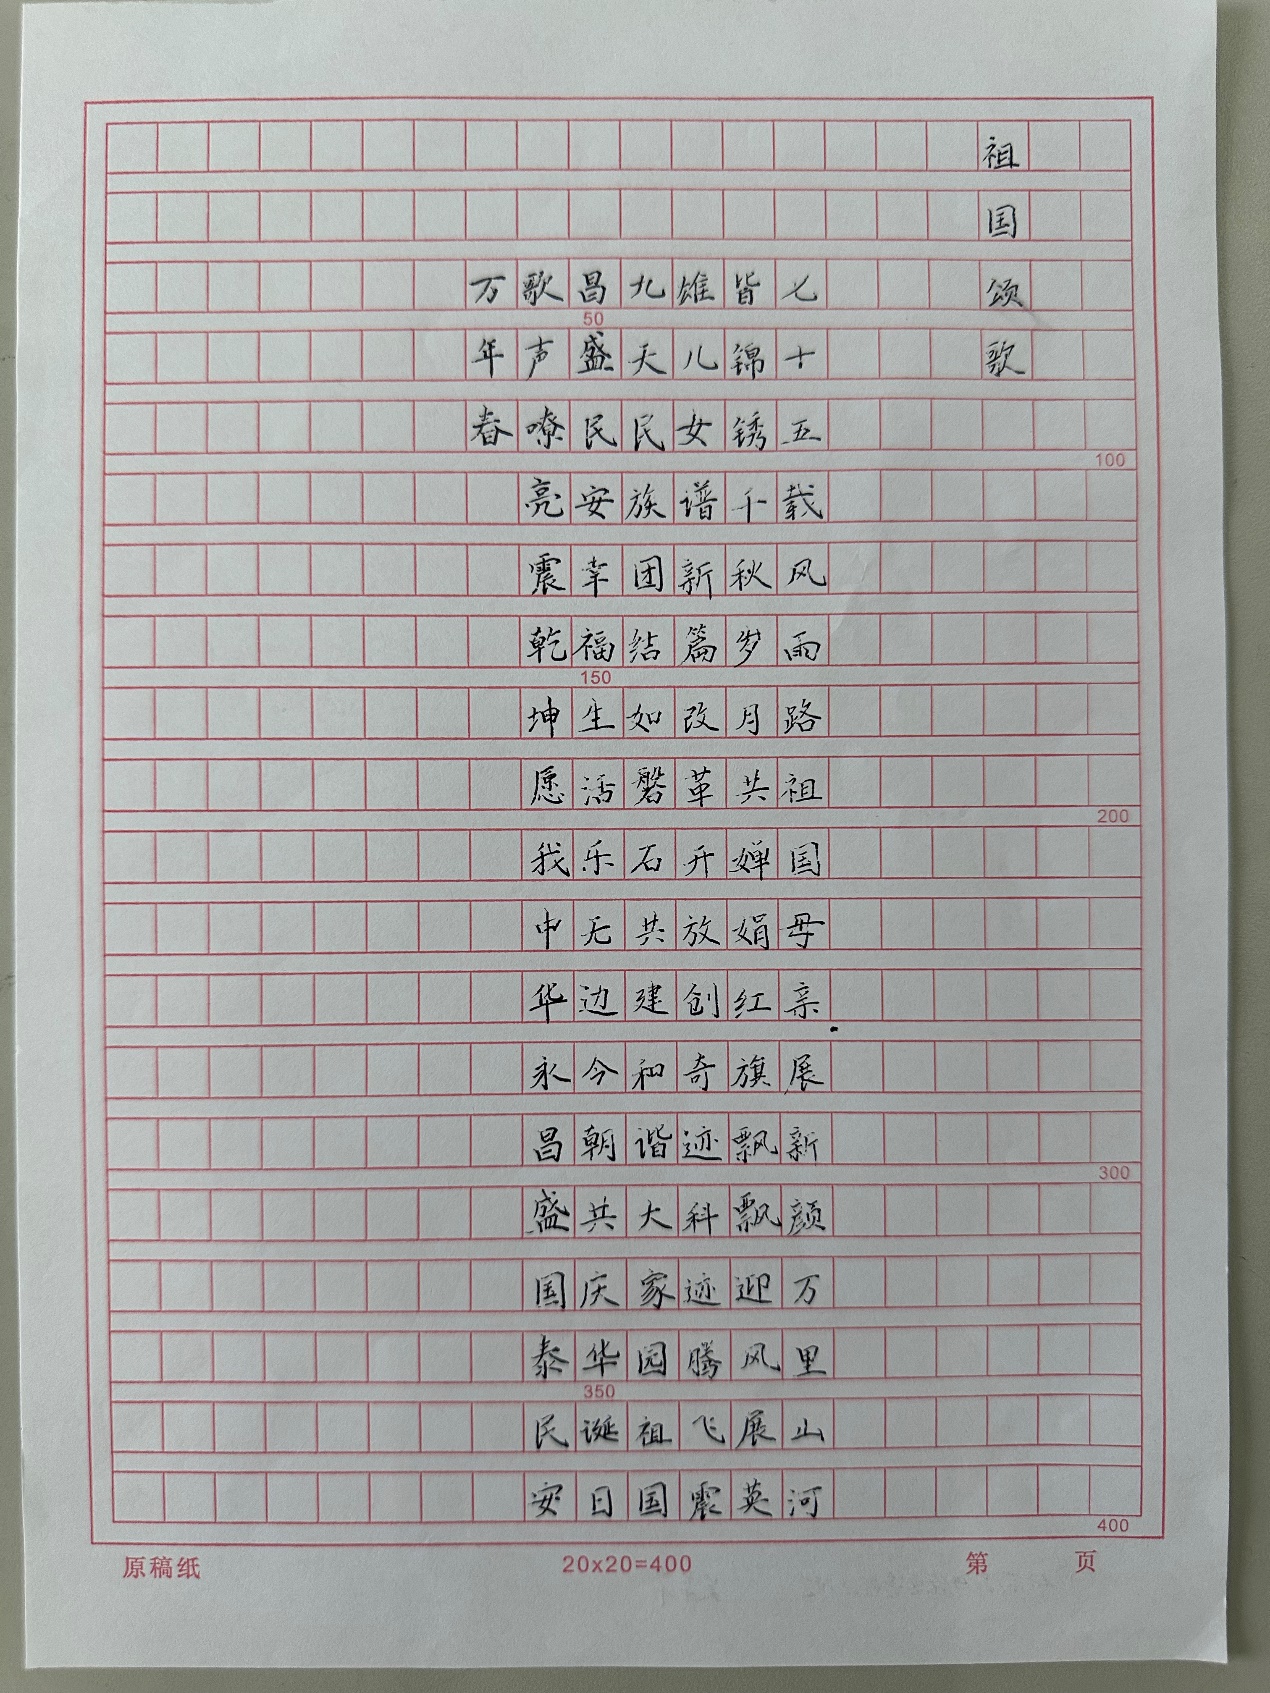 祖国颂歌
七十五载风雨路祖国母亲展新颜万里山河
皆锦锈千秋岁月共婵娟红旗飘飘迎风展英
雄儿女谱新篇改革开放创奇迹科迹腾飞震
九天民族团结如磐石共建和谐大家园祖国
昌盛民安幸福生活乐无边今朝共庆华诞日
歌声嘹亮震乾坤愿我中华永昌盛国泰民安
万年春
50
100
150
200
300
350
400
原稿纸 20x20=400 第 页